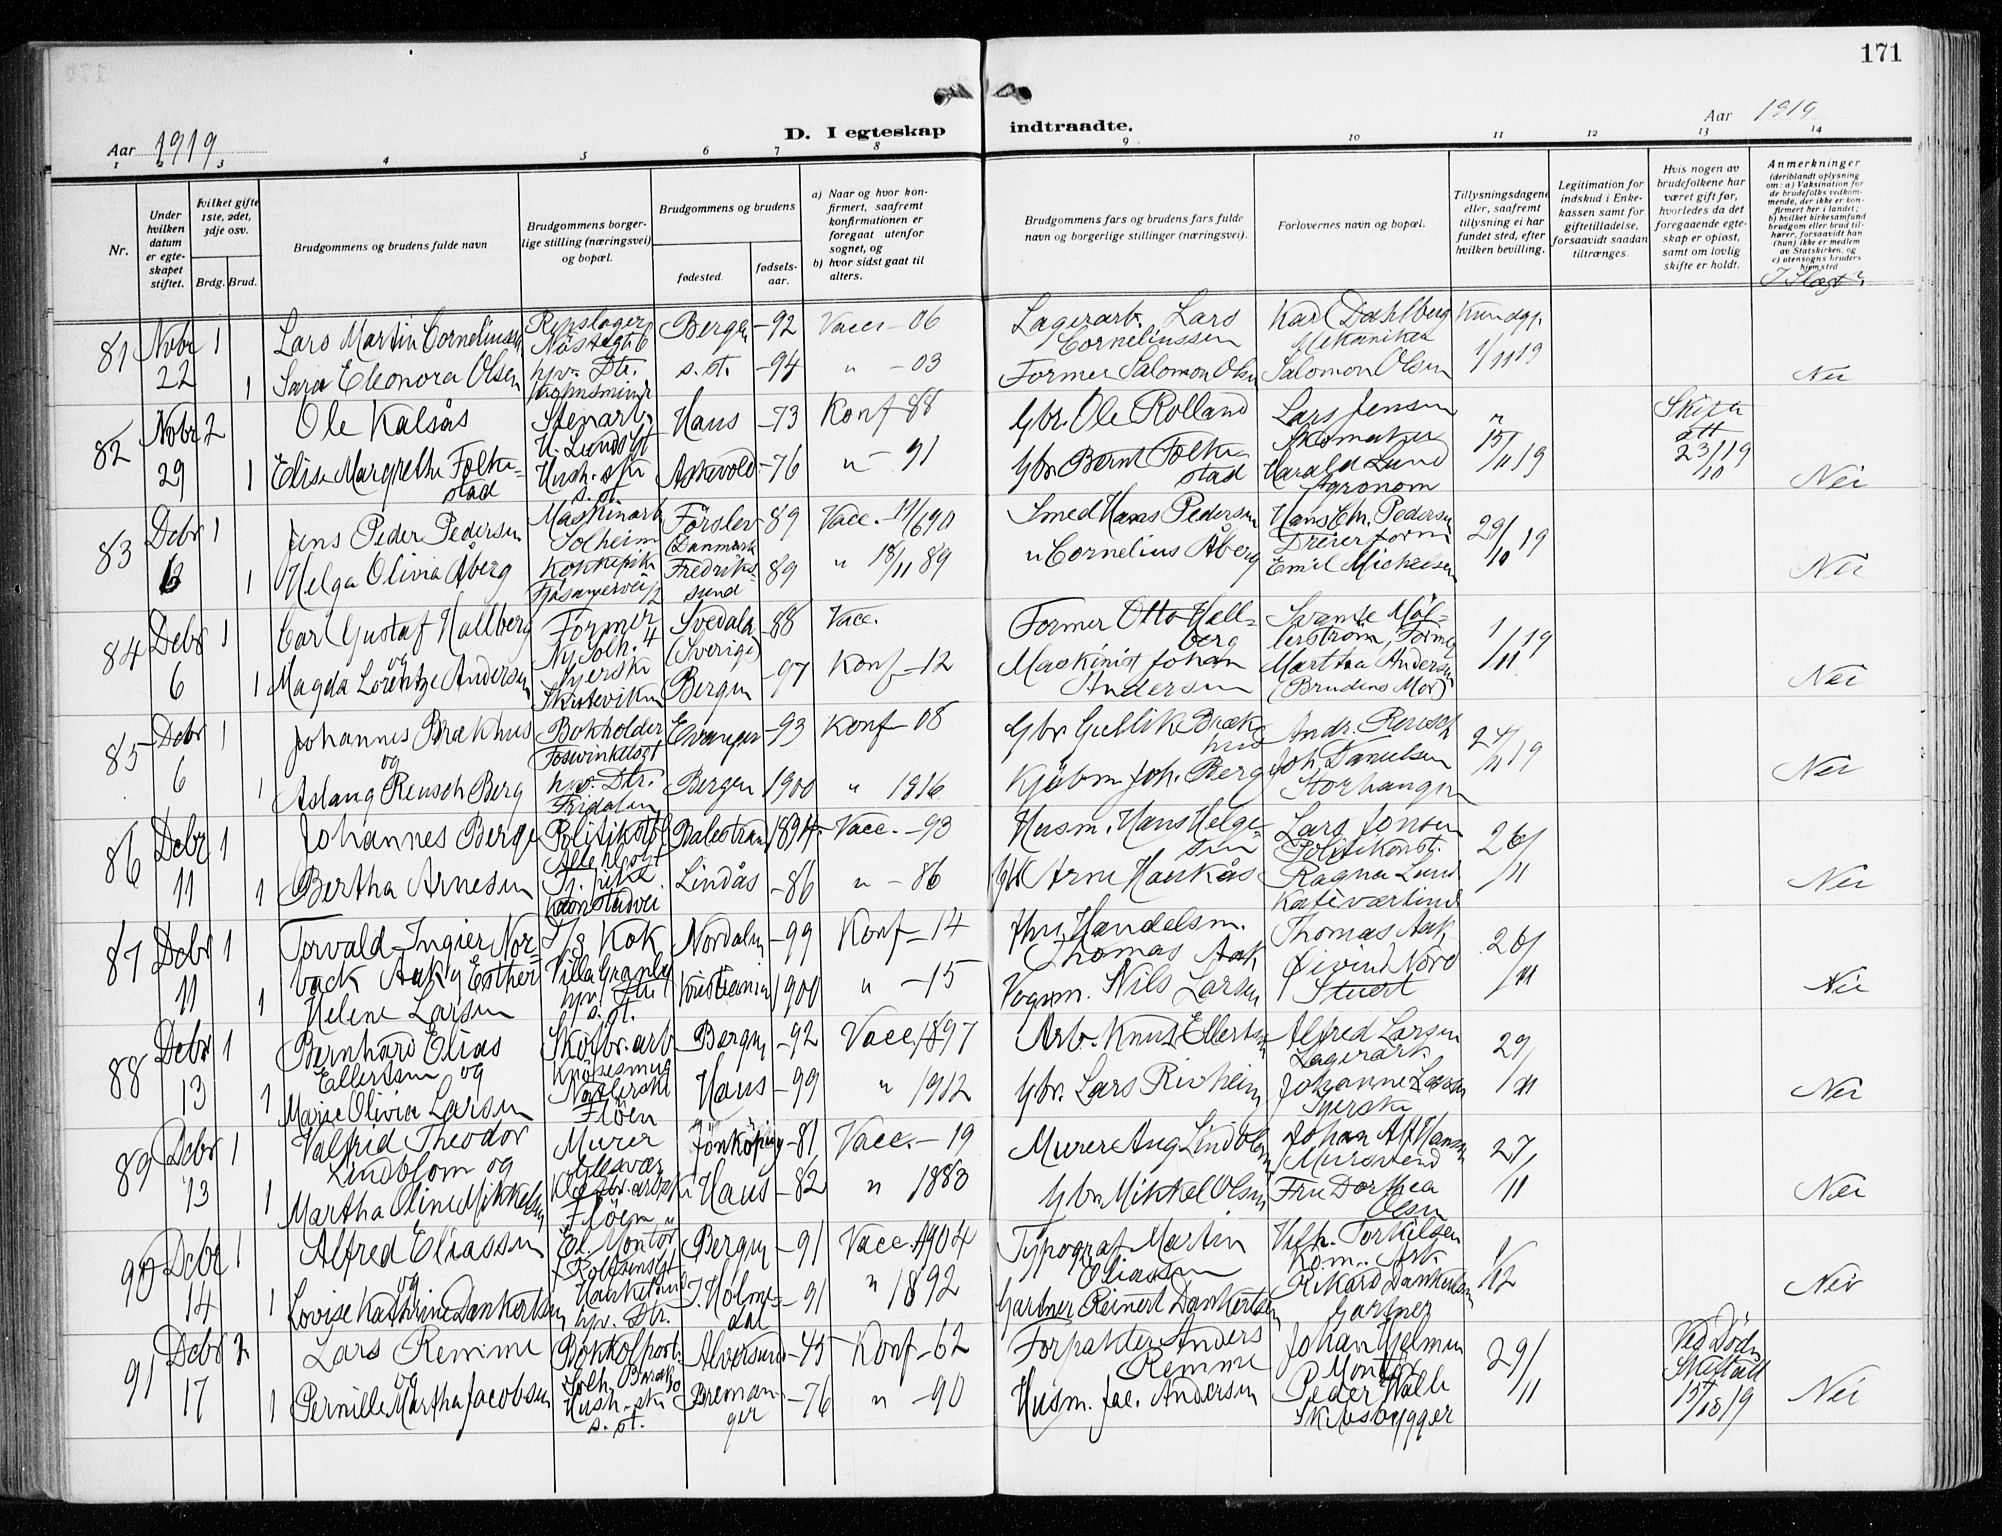 171
Aar 1919
D. I egteskap
indtraadte.
Aar 1919
1 2 3 4 5 6 7 8 9 10 11 12 13 14
Nr.
Under hvilken datum er egteskapet stiftet.
hvilket gifte 1ste, 2det, 3dje osv.
Brdg. Brud.
Brudgommens og brudens fulde navn
Brudgommens borgerlige stilling (næringsvei) og bopæl.
Brudgommens og brudens
fødested.
fødselsaar.
a) Naar og hvor konfirmert, saafremt konfirmationen er foregaat utenfor sognet, og
b) hvor sidst gaat til alters.
Brudgommens fars og brudens fars fulde navn og borgerlige stillinger (næringsvei).
Forlovernes navn og bopæl.
Tillysningsdagene eller, saafremt tillysning ei har fundet sted, efter hvilken bevilling.
Legitimation for indskud i Enkekassen samt for giftetilladelse, forsaavidt saadan tiltrænges.
Hvis nogen av brudefolkene har været gift før, hvorledes da det foregaaende egteskap er opløst, samt om lovlig skifte er holdt.
Anmerkninger
(deriblandt oplysning om: a) Vaksination for de brudefolks vedkommende, der ikke er konfirmert her i landet; b) hvilket kirkesamfund brudgom eller brud tilhører, forsaavidt han (hun) ikke er medlem av Statskirken, og c) utensogns bruders hjemsted
I Slægt?
81 Novbr 1 Lars Martin Corneliussen Repslager Bergen -92 Vacc -06 Lagerarb. Lars Karl Dahlberg Kundgj.
Nøstegt 6 Corneliussen Mekaniker
22 1 Sara Eleonora Olsen hjv. Dtr. s. st. -94 " -03 Former Salomon Olsen Salomon Olsen 1/11 19 Nei
82 Novbr 2 Ole Kalsås Stenarb. Haus -73 Konf -88 Gbr Ole Rolland Lars Jensen " Skifte
N. Lunds gt Skomaker 15/11 19 att
29 1 Elise Margrethe Folkestad Hush.ske Askevold -76 " -91 Gbr Bernt Folkestad Harald Lund 23/10 19 Nei
s. st. Agronom
83 Debr 1 Jens Peder Pedersen Maskinarb Førslev -89 Vacc. 11/6 90 Smed Hans Pedersen Hans Chr. Pedersen 29/10 19
Solheim (Danmark Dreierform
6 1 Helga Olivia Åberg Kokkepike Fredrikssund 89 " 18/11 89 " Cornelius Åberg Emil Mickelsen Nei
84 Debr 1 Carl Gustaf Hallberg Former Svedala -88 Vacc. Former Otto Hallberg
og Ny Solh. 4 (Sverige) 1/11 19
6 1 Magda Lorentze Andersen Syerske Bergen -97 Konf -12 Maskinist Johan Andersen Martha Andersen Nei
Skuteviken (Brudens Mor)
85 Debr 1 Johannes Brækhus Bokholder Evanger -93 Konf -08 Gbr Gullik Brækhus Andr. Reusch 24/11 19
og Foswinkelsgt
6 1 Aslaug Reusch Berg hjv. Dtr. Bergen 1900 " 1916 Kjøbm Joh. Berg Joh. Danielsen Nei
Fridalen Storhaugen
86 Debr 1 Johannes Berge Politikst Balestrand 1894 Vacc. -93 Husm. Hans Helgesen Lars Jonsen 26/11
Politikonst.
11 1 Bertha Arnesen Tj. pike Lindås -86 " -86 Gbr Arne Haukås Ragna Lund Nei
Kafeværtinde
87 Debr 1 Torvald Ingier Norback Aak og Esther Helene Larsen Kok Nordalen -99 Konf -14 Handelsm. Thomas Aak Thomas Aak 26/11
Villa Granly
11 1 hjv. s. st. Kristiania 1900 " -15 Vognm. Nils Larsen Øivind Nord Nei
Stuert
88 Debr 1 Bernhard Elias Ellertsen og Skofbr.arb Bergen -92 Vacc. 1897 Arb. Knut Ellertsen Alfred Larsen 29/11
Lagerarb
13 1 Marie Olivia Larsen Haus -99 " 1912 Gbr. Lars Rivheim Johanne Larsen Nei
Fløen Syerske
89 Debr 1 Valfrid Theodor Lindblom og Murer Jönköping -81 Vacc. -19 Murer Aug Lindblom Johan Alf Hansen 27/11
Mursvend
13 1 Martha Oline Mikkelsen Haus -82 " 1883 Gbr Mikkel Olsen Fru Dorthea Olsen Nei
Fløen
90 Debr 1 Alfred Eliassen El. Montør Bergen -91 Vacc. 1904 Typograf Martin Eliassen Vilh. Torkelsen 1/12
og Kom. Arb.
14 1 Lovise Kathrine Dankertsen hjv. Dtr. J. Holmedal -91 " 1892 Gartner Reinert Dankertsen Rikard Dankertsen Nei
Gartner
91 Debr 2 Lars Remme Bokkolport. Alversund -45 Konf -62 Forpakter Anders Remme Johan Hjelmen 29/11 Ved Døden
og Solh. Montør Skift att
17 1 Pernille Martha Jacobsen Hush.ske Bremanger -76 " -90 Husm. Jac. Andersen Peder Walle 15/10 19 Nei
s. st. Skibsbygger